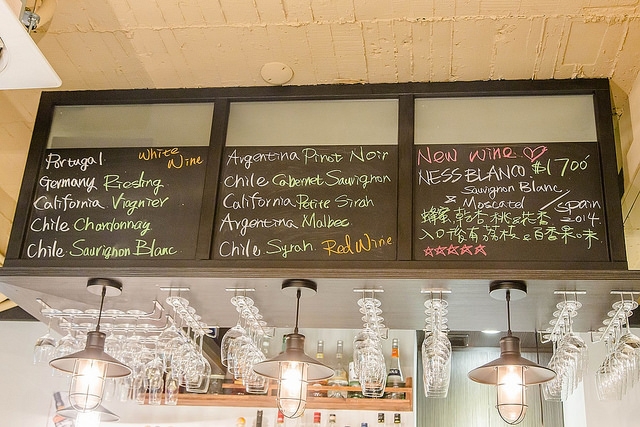 Portugal White Wine
Germany Riesling
California Viognier
Chile Chardonnay
Chile Sauvignon Blanc
Argentina Pinot Noir
Chile Cabernet Sauvignon
California Petite Sirah
Argentina Malbec
Chile Syrah Red Wine
New wine ♡
NESS BLANCO $1700
Sauvignon Blanc
& Moscatel / Spain
蜂蜜, 乾杏桃&扶香 2014
入口後有荔枝&百香果口味
☆☆☆☆☆